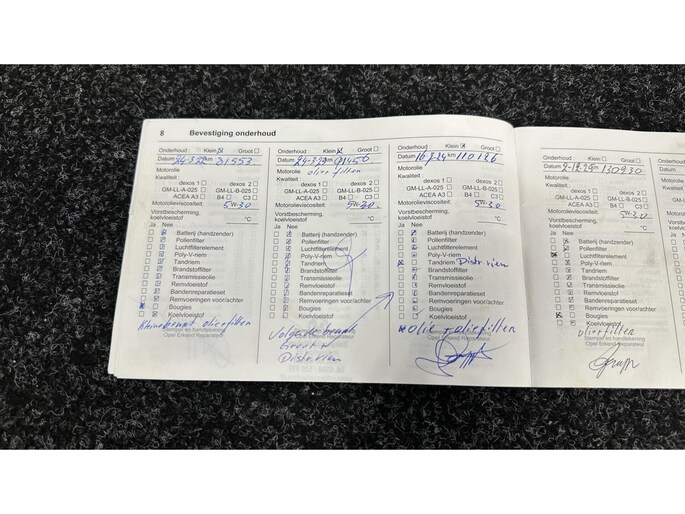 8 Bevestiging onderhoud
Onderhoud : Klein Groot
Datum km 81553
Motorolie
Kwaliteit :
dexos 1 dexos 2
GM-LL-A-025 GM-LL-B-025
ACEA A3 B4 C3
Motorolieviscositeit: 5W-30
Vorstbescherming,
koelvloeistof °C
Ja Nee
Batterij (handzender)
Pollenfilter
Luchtfilterelement
Poly-V-riem
Tandriem
Brandstoffilter
Transmissieolie
Remvloeistof
Bandenreparatieset
Remvoeringen voor/achter
Bougies
Koelvloeistof
Kleine beurt oliefilter
Stempel en handtekening
Opel Erkend Reparateur
Onderhoud : Klein Groot
Datum km 91456
Motorolie oliefilter
Kwaliteit :
dexos 1 dexos 2
GM-LL-A-025 GM-LL-B-025
ACEA A3 B4 C3
Motorolieviscositeit: 5W-30
Vorstbescherming,
koelvloeistof °C
Ja Nee
Batterij (handzender)
Pollenfilter
Luchtfilterelement
Poly-V-riem
Tandriem
Brandstoffilter
Transmissieolie
Remvloeistof
Bandenreparatieset
Remvoeringen voor/achter
Bougies
Koelvloeistof
Volgende beurt
Groot +
Distr. riem
Onderhoud : Klein Groot
Datum km 110126
Motorolie
Kwaliteit :
dexos 1 dexos 2
GM-LL-A-025 GM-LL-B-025
ACEA A3 B4 C3
Motorolieviscositeit: 5W-30
Vorstbescherming,
koelvloeistof °C
Ja Nee
Batterij (handzender)
Pollenfilter
Luchtfilterelement
Poly-V-riem
Tandriem Distr. riem
Brandstoffilter
Transmissieolie
Remvloeistof
Bandenreparatieset
Remvoeringen voor/achter
Bougies
Koelvloeistof
olie + oliefilter
Stempel en handtekening
Opel Erkend Reparateur
Onderhoud : Klein Groot
Datum km 130930
Motorolie
Kwaliteit :
dexos 1 dexos 2
GM-LL-A-025 GM-LL-B-025
ACEA A3 B4 C3
Motorolieviscositeit: 5W-30
Vorstbescherming,
koelvloeistof °C
Ja Nee
Batterij (handzender)
Pollenfilter
Luchtfilterelement
Poly-V-riem
Tandriem
Brandstoffilter
Transmissieolie
Remvloeistof
Bandenreparatieset
Remvoeringen voor/achter
Bougies
Koelvloeistof
oliefilter
Stempel en handtekening
Opel Erkend Reparateur